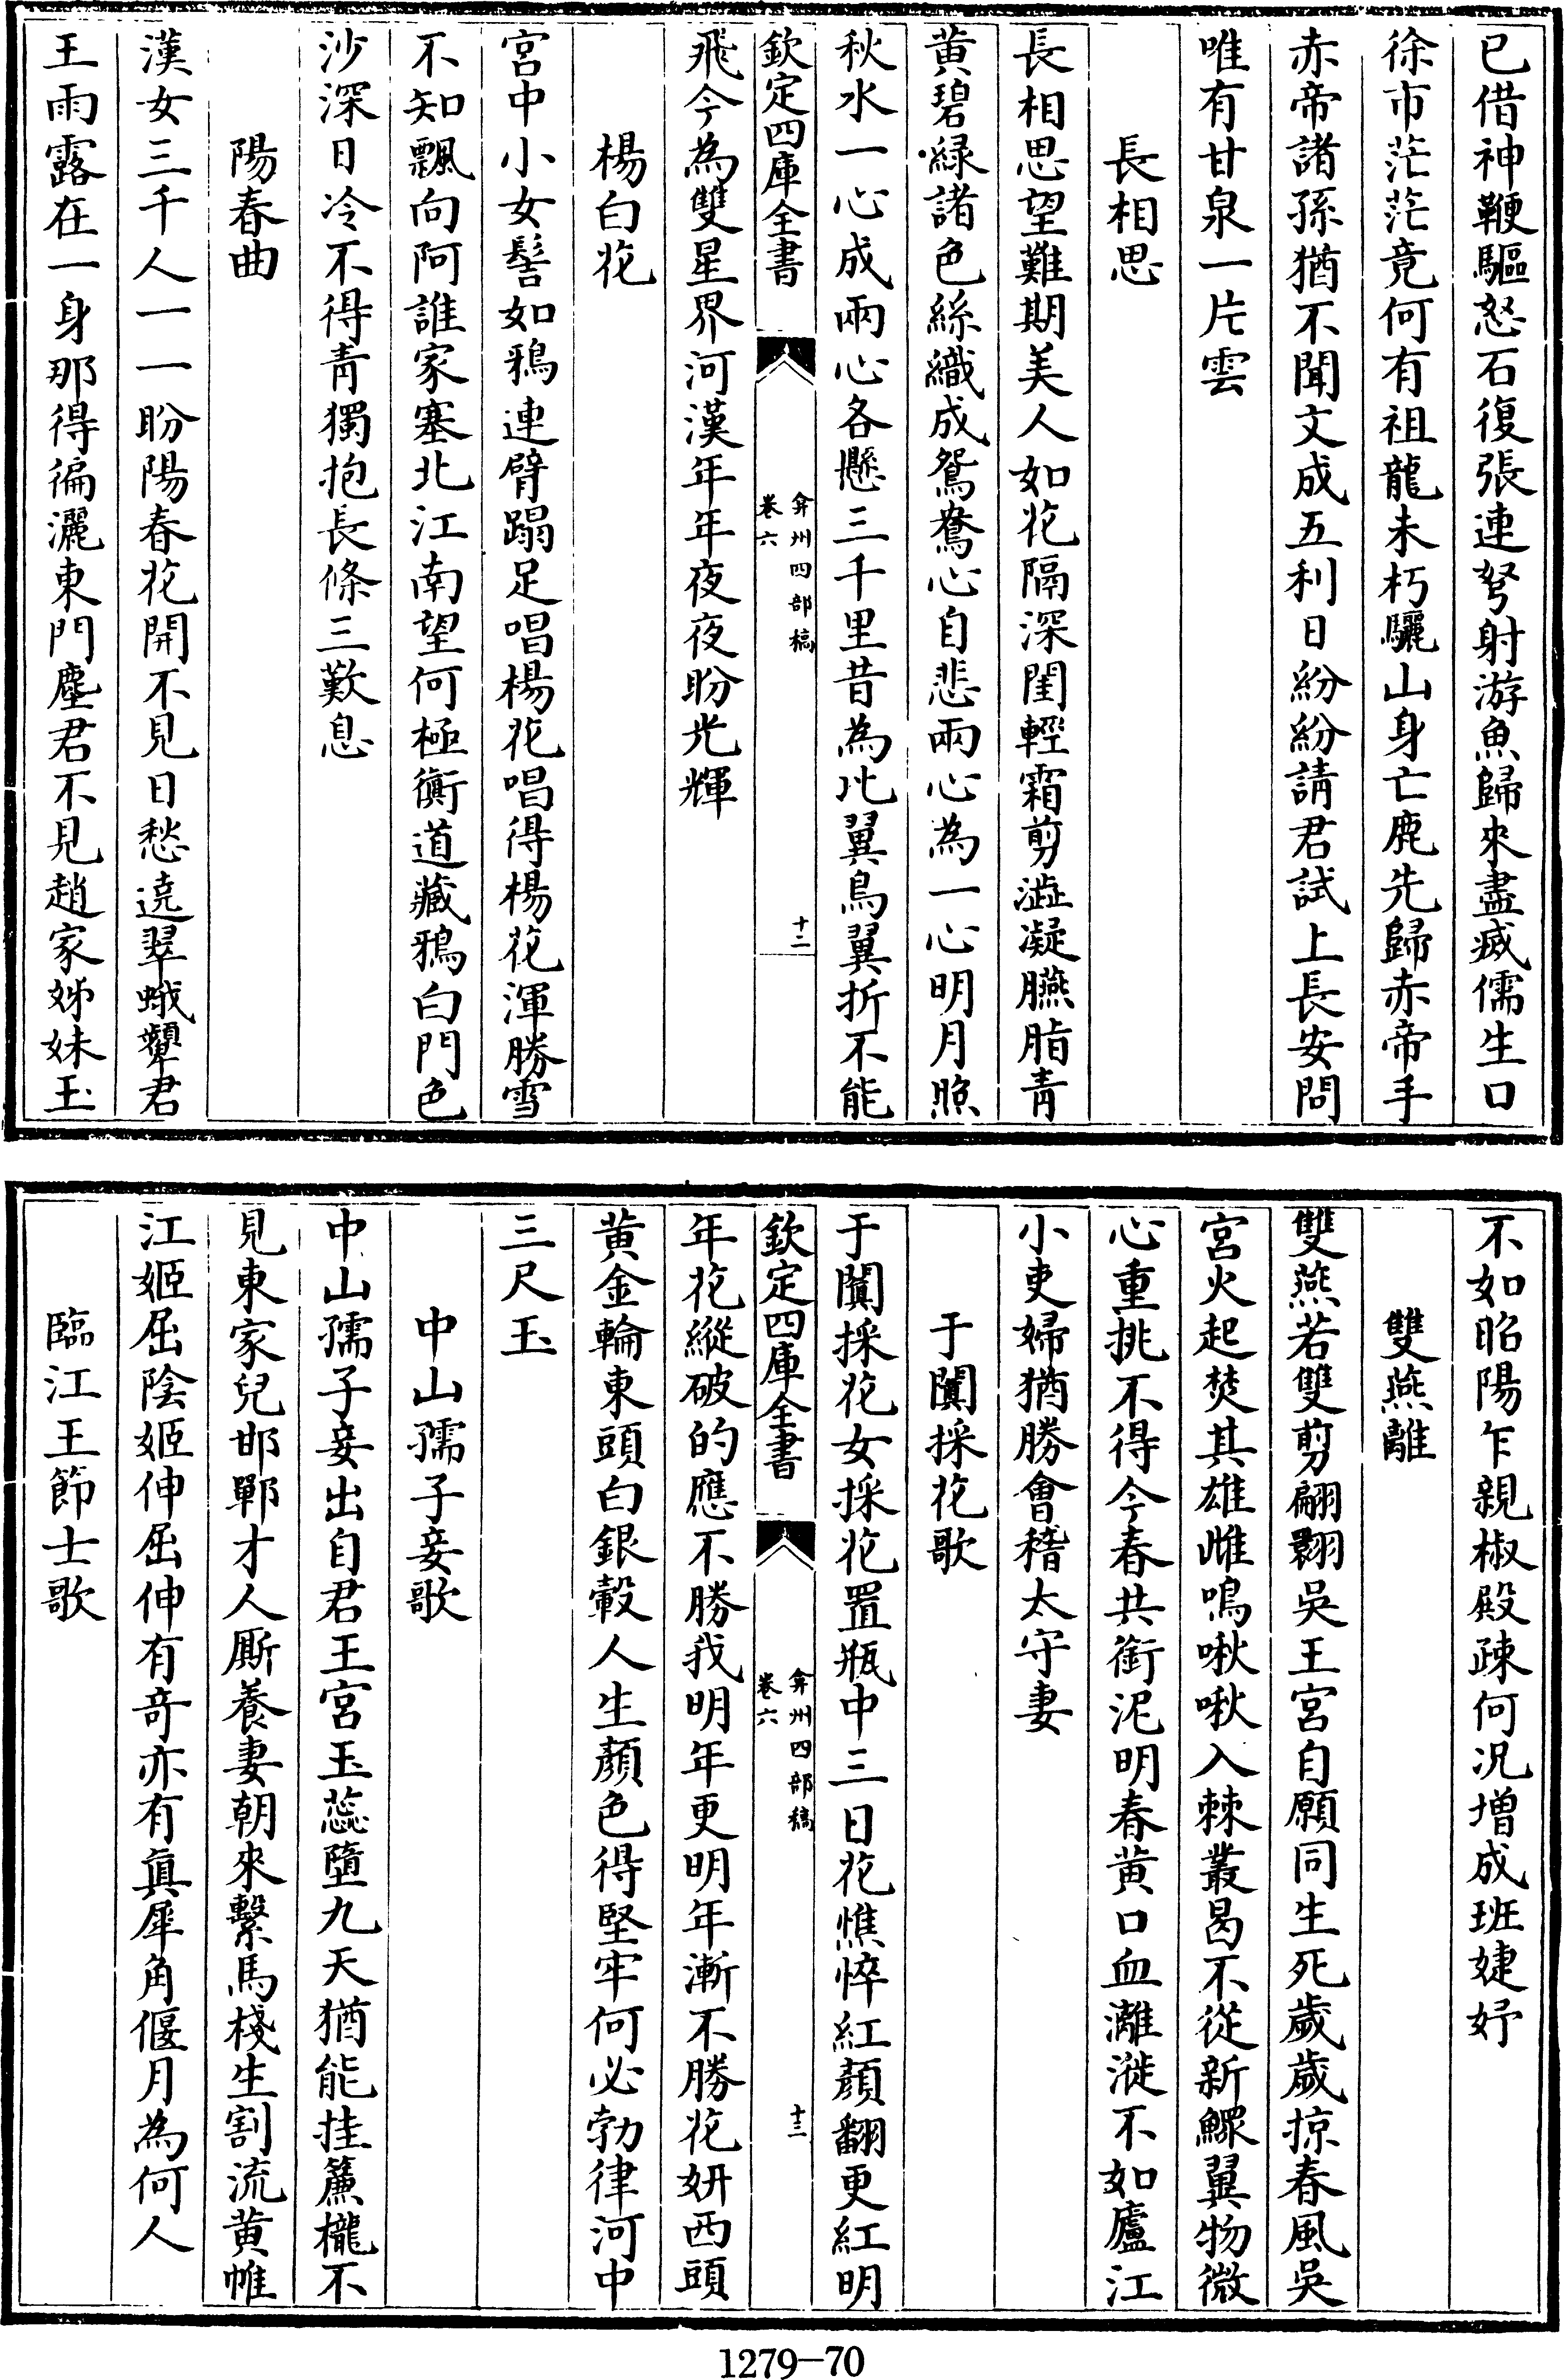 已借神鞭驅怒石復張連弩射游魚歸來盡㦯儒生口
徐市茫茫竟何有祖龍未朽驪山身亡鹿先歸赤帝手
赤帝諸孫猶不聞文成五利日紛紛請君試上長安問
唯有甘泉一片雲
長相思
長相思望難期美人如花隔深閨輕霜剪澁凝臙脂青
黄碧緑諸色絲織成鴛鴦心自悲兩心為一心明月照
秋水一心成兩心各懸三千里昔為比翼鳥翼折不能
欽定四庫全書
弇州四部稿
卷六
十二
飛今為雙星界河漢年年夜夜盼光輝
楊白花
宮中小女髻如鴉連臂蹋足唱楊花唱得楊花渾勝雪
不知飄向阿誰家塞北江南望何極衡道藏鴉白門色
沙深日冷不得青獨抱長條三歎息
陽春曲
漢女三千人一一盼陽春花開不見日愁遶翠蛾顰君
王雨露在一身那得徧灑東門塵君不見趙家姊妹玉
不如昭陽乍親椒殿疎何况増成班婕妤
雙燕離
雙燕若雙剪翩翾吳王宮自願同生死歲歲掠春風吳
宮火起焚其雄雌鳴啾啾入棘叢曷不從新鰥翼物微
心重挑不得今春共銜泥明春黄口血灕漇不如廬江
小吏婦猶勝會稽太守妻
于闐採花歌
于闐採花女採花置瓶中三日花憔悴紅顏翻更紅明
欽定四庫全書
弇州四部稿
卷六
十三
年花縱破的應不勝我明年更明年漸不勝花妍西頭
黄金輪東頭白銀轂人生顏色得堅牢何必勃律河中
三尺玉
中山孺子妾歌
中山孺子妾出自君王宮玉蕊墮九天猶能挂簾櫳不
見東家兒邯鄲才人厮養妻朝來繫馬棧生割流黄帷
江姬屈陰姬伸屈伸有奇亦有真犀角偃月為何人
臨江王節士歌
1279—70